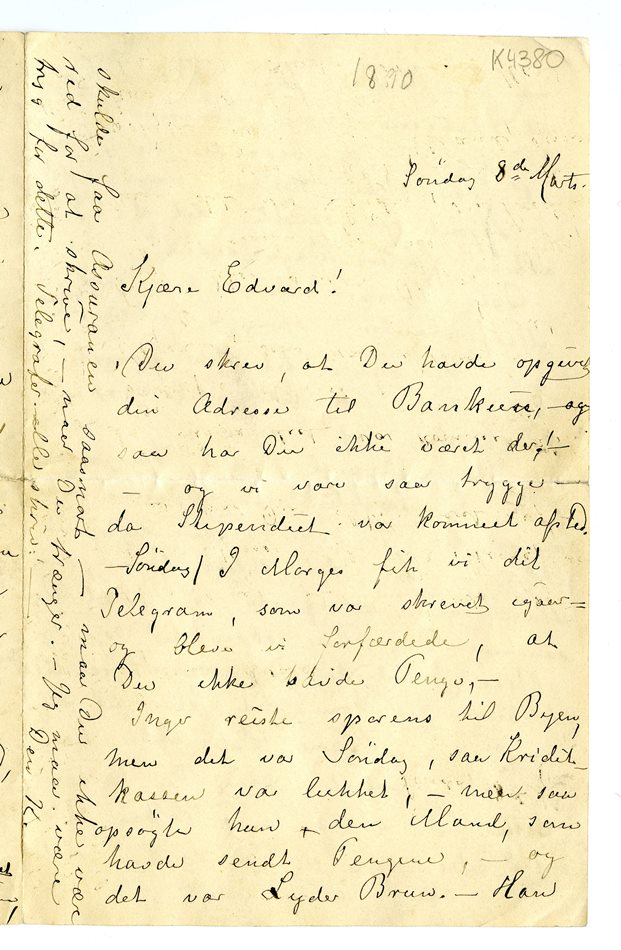 K4380
1890
Søndag 8de Marts.
Kjære Edvard!
Du skrev, at Du havde opgivet
din Adresse til Banken, – og
saa har Du ikke været der! –
– og vi vare saa trygge –
da Stipendiet var kommet afsted.
– Søndag / I Morges fik vi dit
Telegram, som var skrevet igaar –
og bleve vi forfærdede, at
Du ikke havde Penge, –
Inger reiste sporens til Byen,
men det var Søndag, saa Kredit-
kassen var lukket, – men saa
opsøgte hun den Mand, som
havde sendt Pengene, – og
det var Lyder Brun. – Han
skulde faa saasnart – maa Du ikke være
ræd for at skrive! – naar Du trænger. – Jeg maa være
tryg for dette. Telegrafer eller skriv! –
Din K.